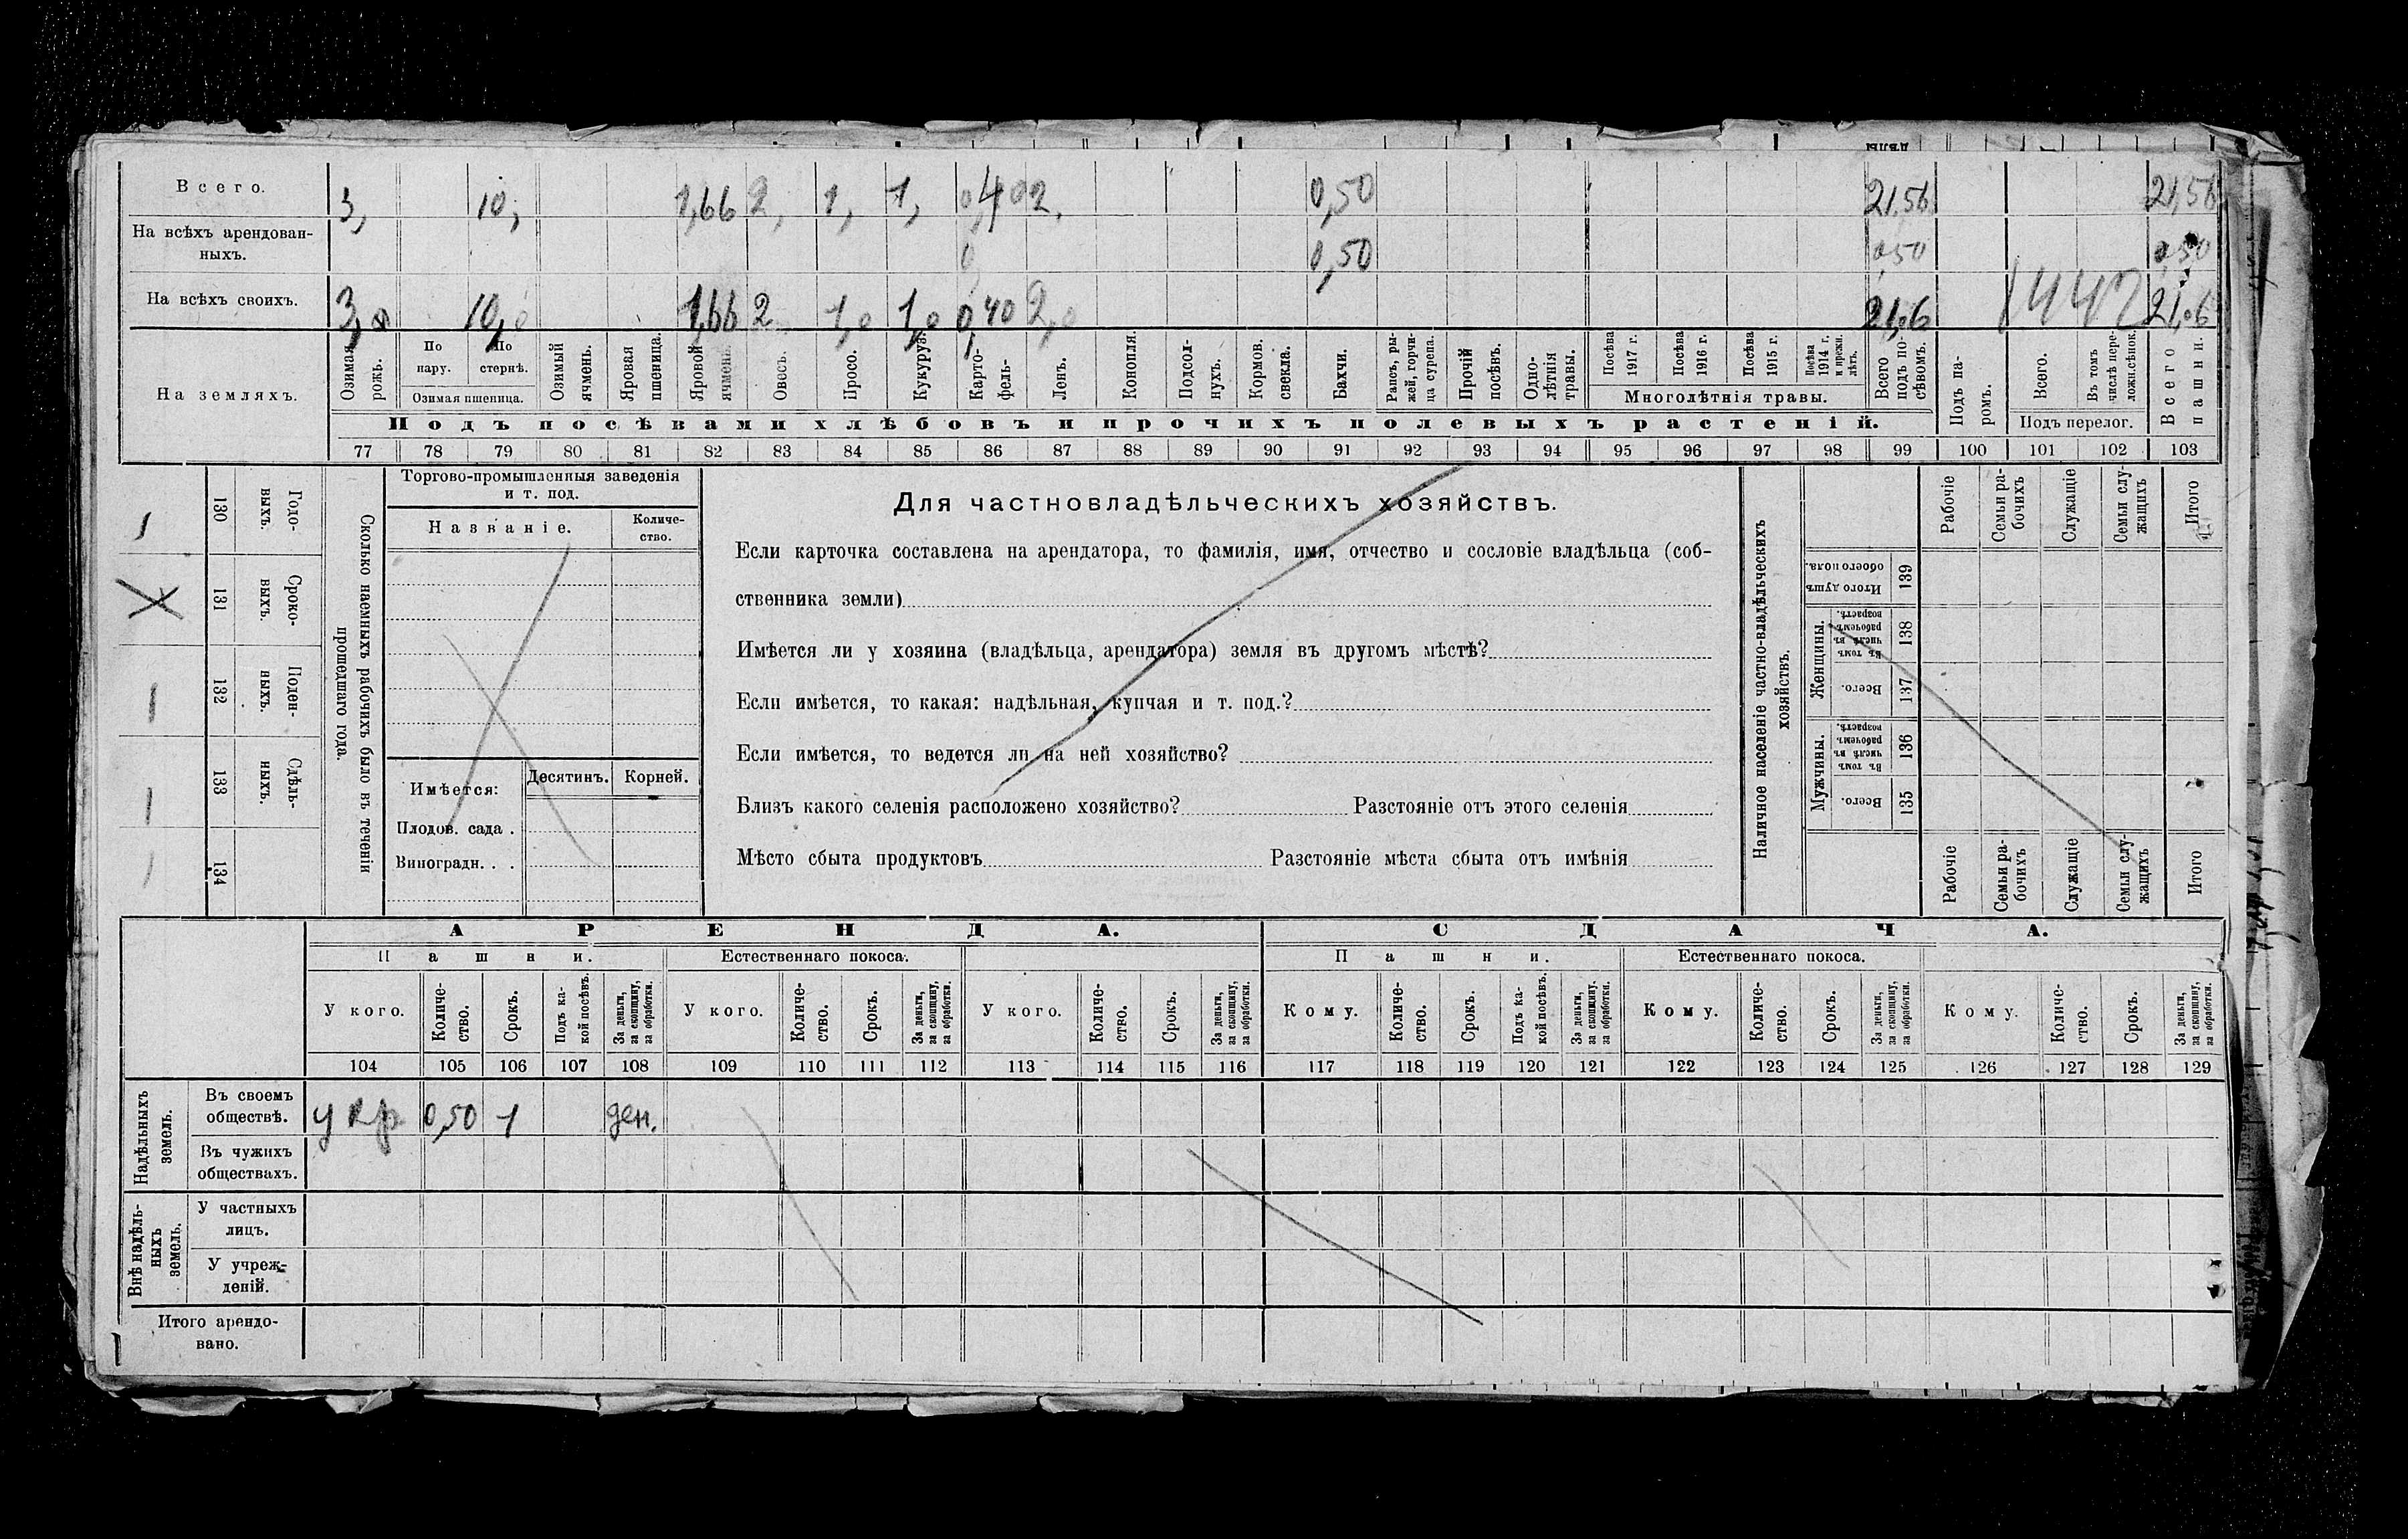 Всего. 3, 10, 1,66 2, 1, 1, 0,40 2, 0,50 21,56 21,56
На всѣхъ арендован-
ныхъ. 0,50 0,50 0,50
На всѣхъ своихъ. 3,0 10,0 1,66 2 1,0 1,0 0,40 2,0 21,06 21,06
На земляхъ.
Озимая рожь.
По пару.
По стернѣ.
Озимая пшеница.
Озимый ячмень.
Яровая пшеница.
Яровой ячмень.
Овесъ.
Просо.
Кукуруза.
Карто-
фель.
Ленъ.
Конопля.
Подсол-
нухъ.
Кормов. свекла.
Бахчи.
Рапсъ, ры-
жей, горчи-
ца сурепа.
Прочій посѣвъ.
Одно-
лѣтнія травы.
Посѣва 1917 г.
Посѣва 1916 г.
Посѣва 1915 г.
Посѣва 1914 г. и прежн. лѣтъ.
Многолѣтнія травы.
Всего подъ по-
сѣвомъ.
Подъ па-
ромъ.
Всего.
Въ томъ числѣ пере-
ложн. сѣнок.
Подъ перелог.
Всего пашни.
Подъ посѣвами хлѣбовъ и прочихъ полевыхъ растеній.
77 78 79 80 81 82 83 84 85 86 87 88 89 90 91 92 93 94 95 96 97 98 99 100 101 102 103
130 Годо-
выхъ.
131 Сроко-
выхъ.
132 Поден-
ныхъ.
133 Сдѣль-
ныхъ.
134
Сколько наемныхъ рабочихъ было въ теченіи
прошедшаго года.
Торгово-промышленныя заведенія
и т. под.
Названіе.
Количе-
ство.
Имѣется: Десятинъ. Корней.
Плодов. сада .
Виноградн. . .
Для частновладѣльческихъ хозяйствъ.
Если карточка составлена на арендатора, то фамилія, имя, отчество и сословіе владѣльца (соб-
ственника земли)
Имѣется ли у хозяина (владѣльца, арендатора) земля въ другомъ мѣстѣ?
Если имѣется, то какая: надѣльная, купчая и т. под.?
Если имѣется, то ведется ли на ней хозяйство?
Близъ какого селенія расположено хозяйство? Разстояніе отъ этого селенія
Мѣсто сбыта продуктовъ Разстояніе мѣста сбыта отъ имѣнія
Наличное населеніе частно-владѣльческихъ
хозяйствъ.
Рабочіе
Семьи ра-
бочихъ
Служащіе
Семьи слу-
жащихъ
Итого
Итого душъ обоего пола. 139
Женщины.
Въ томъ числѣ въ рабочемъ возрастѣ. 138
Всего. 137
Мужчины.
Въ томъ числѣ въ рабочемъ возрастѣ. 136
Всего. 135
Рабочіе
Семьи ра-
бочихъ
Служащіе
Семьи слу-
жащихъ
Итого
АРЕНДА. СДАЧА.
Пашни. Естественнаго покоса. Пашни. Естественнаго покоса.
У кого.
Количе-
ство.
Срокъ.
Подъ ка-
кой посѣвъ.
За деньги,
за скопщину,
за обработки.
У кого.
Количе-
ство.
Срокъ.
За деньги,
за скопщину,
за обработки.
У кого.
Количе-
ство.
Срокъ.
За деньги,
за скопщину,
за обработки.
Кому.
Количе-
ство.
Срокъ.
Подъ ка-
кой посѣвъ.
За деньги,
за скопщину,
за обработки.
Кому.
Количе-
ство.
Срокъ.
За деньги,
за скопщину,
за обработки.
Кому.
Количе-
ство.
Срокъ.
За деньги,
за скопщину,
за обработки.
104 105 106 107 108 109 110 111 112 113 114 115 116 117 118 119 120 121 122 123 124 125 126 127 128 129
Надѣльныхъ
земель.
Въ своемъ
обществѣ. у кр 0,50 1 ден.
Въ чужихъ
обществахъ.
Внѣ надѣль-
ныхъ
земель.
У частныхъ
лицъ.
У учреж-
деній.
Итого арендо-
вано.